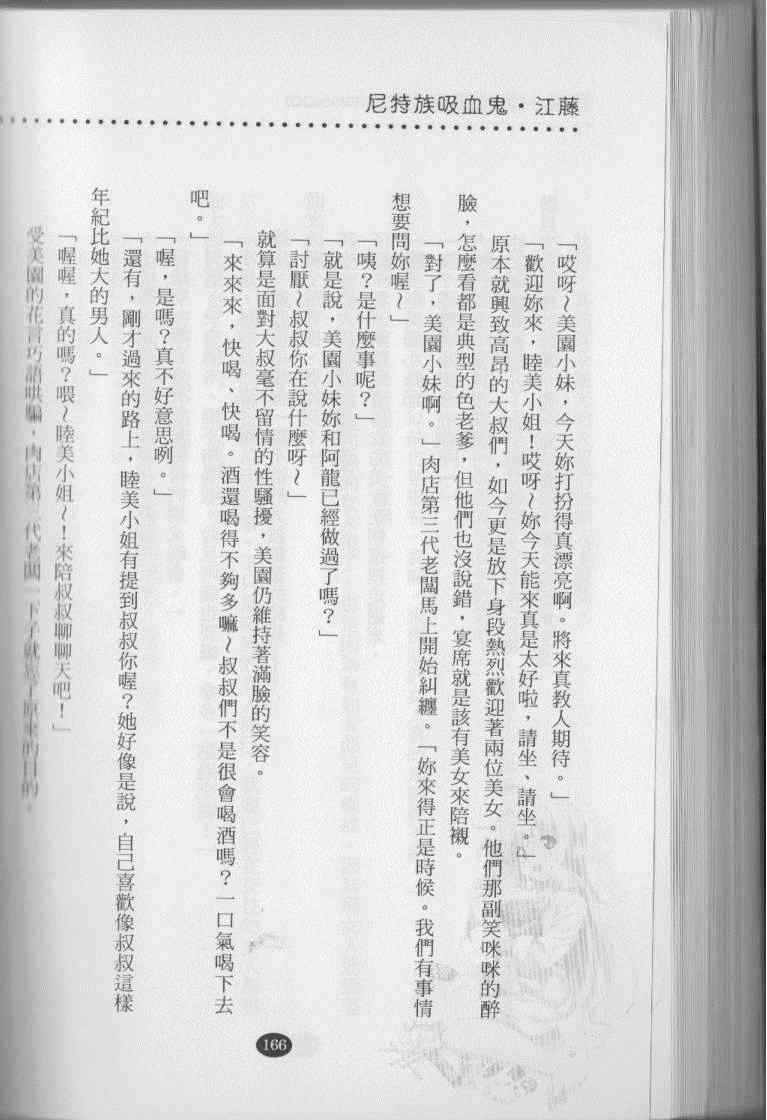 尼特族吸血鬼・江藤
「哎呀～美園小妹，今天妳打扮得真漂亮啊。將來真教人期待。」
「歡迎妳來，睦美小姐！哎呀～妳今天能來真是太好啦，請坐、請坐。」
原本就興致高昂的大叔們，如今更是放下身段熱烈歡迎著兩位美女。他們那副笑咪咪的醉
臉，怎麼看都是典型的色老爹，但他們也沒說錯，宴席就是該有美女來陪襯。
「對了，美園小妹啊。」肉店第三代老闆馬上開始糾纏。「妳來得正是時候。我們有事情
想要問妳喔～」
「咦？是什麼事呢？」
「就是說，美園小妹妳和阿龍已經做過了嗎？」
「討厭～叔叔你在說什麼呀～」
就算是面對大叔毫不留情的性騷擾，美園仍維持著滿臉的笑容。
「來來來，快喝、快喝。酒還喝得不夠多嘛～叔叔們不是很會喝酒嗎？一口氣喝下去
吧。」
「喔，是嗎？真不好意思咧。」
「還有，剛才過來的路上，睦美小姐有提到叔叔你喔？她好像是說，自己喜歡像叔叔這樣
年紀比她大的男人。」
「喔喔，真的嗎？喂～睦美小姐～！來陪叔叔聊聊天吧！」
受美園的花言巧語哄騙，肉店第三代老闆一下子就忘了原來的目的。
166